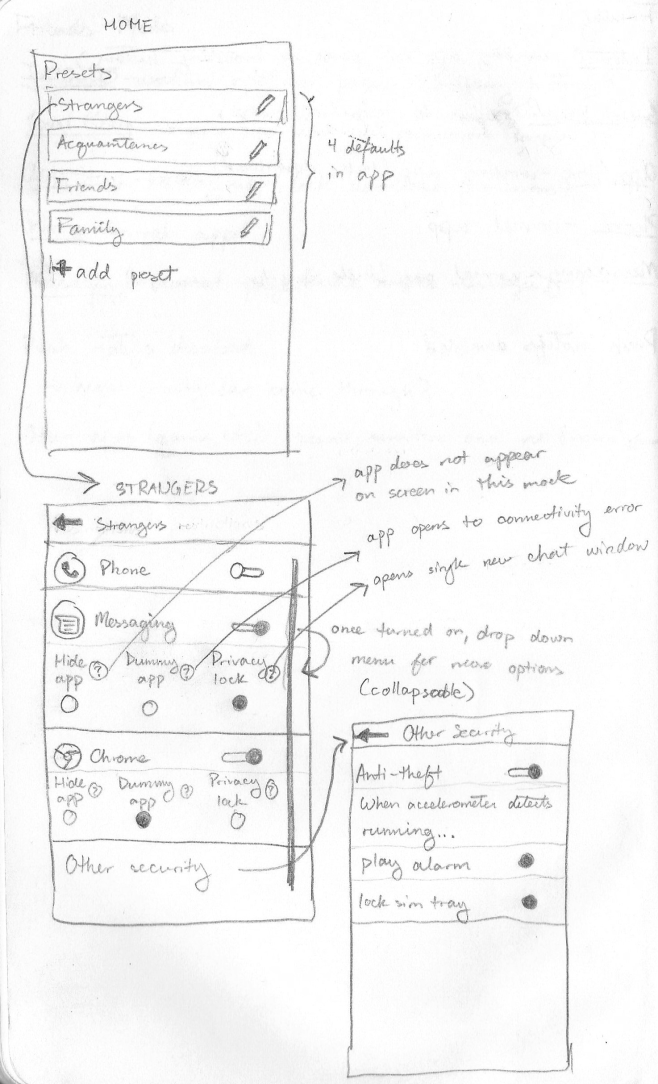 HOME
Presets
Strangers
Acquaintances
Friends
Family
+ add preset
4 defaults
in app
STRANGERS
Strangers
Phone
Messaging
Hide app ?
Dummy app ?
Privacy lock ?
Chrome
Hide app ?
Dummy app ?
Privacy lock ?
Other security
app does not appear
on screen in this mode
app opens to connectivity error
opens single new chat window
once turned on, drop down
menu for more options
(collapseable)
Other Security
Anti-theft
When accelerometer detects
running...
play alarm
lock sim tray